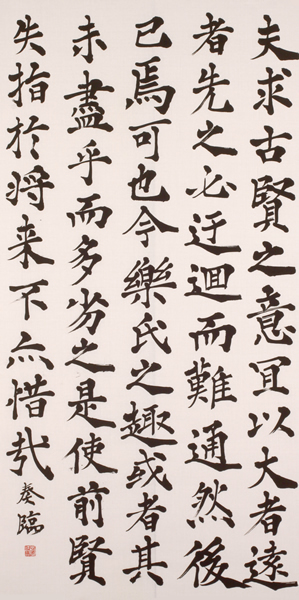 夫求古賢之意冝以大者遠
者先之必迂迴而難通然後
已焉可也今樂氏之趣或者其
未盡乎而多劣之是使前賢
失指於将来不亦惜哉
奏臨